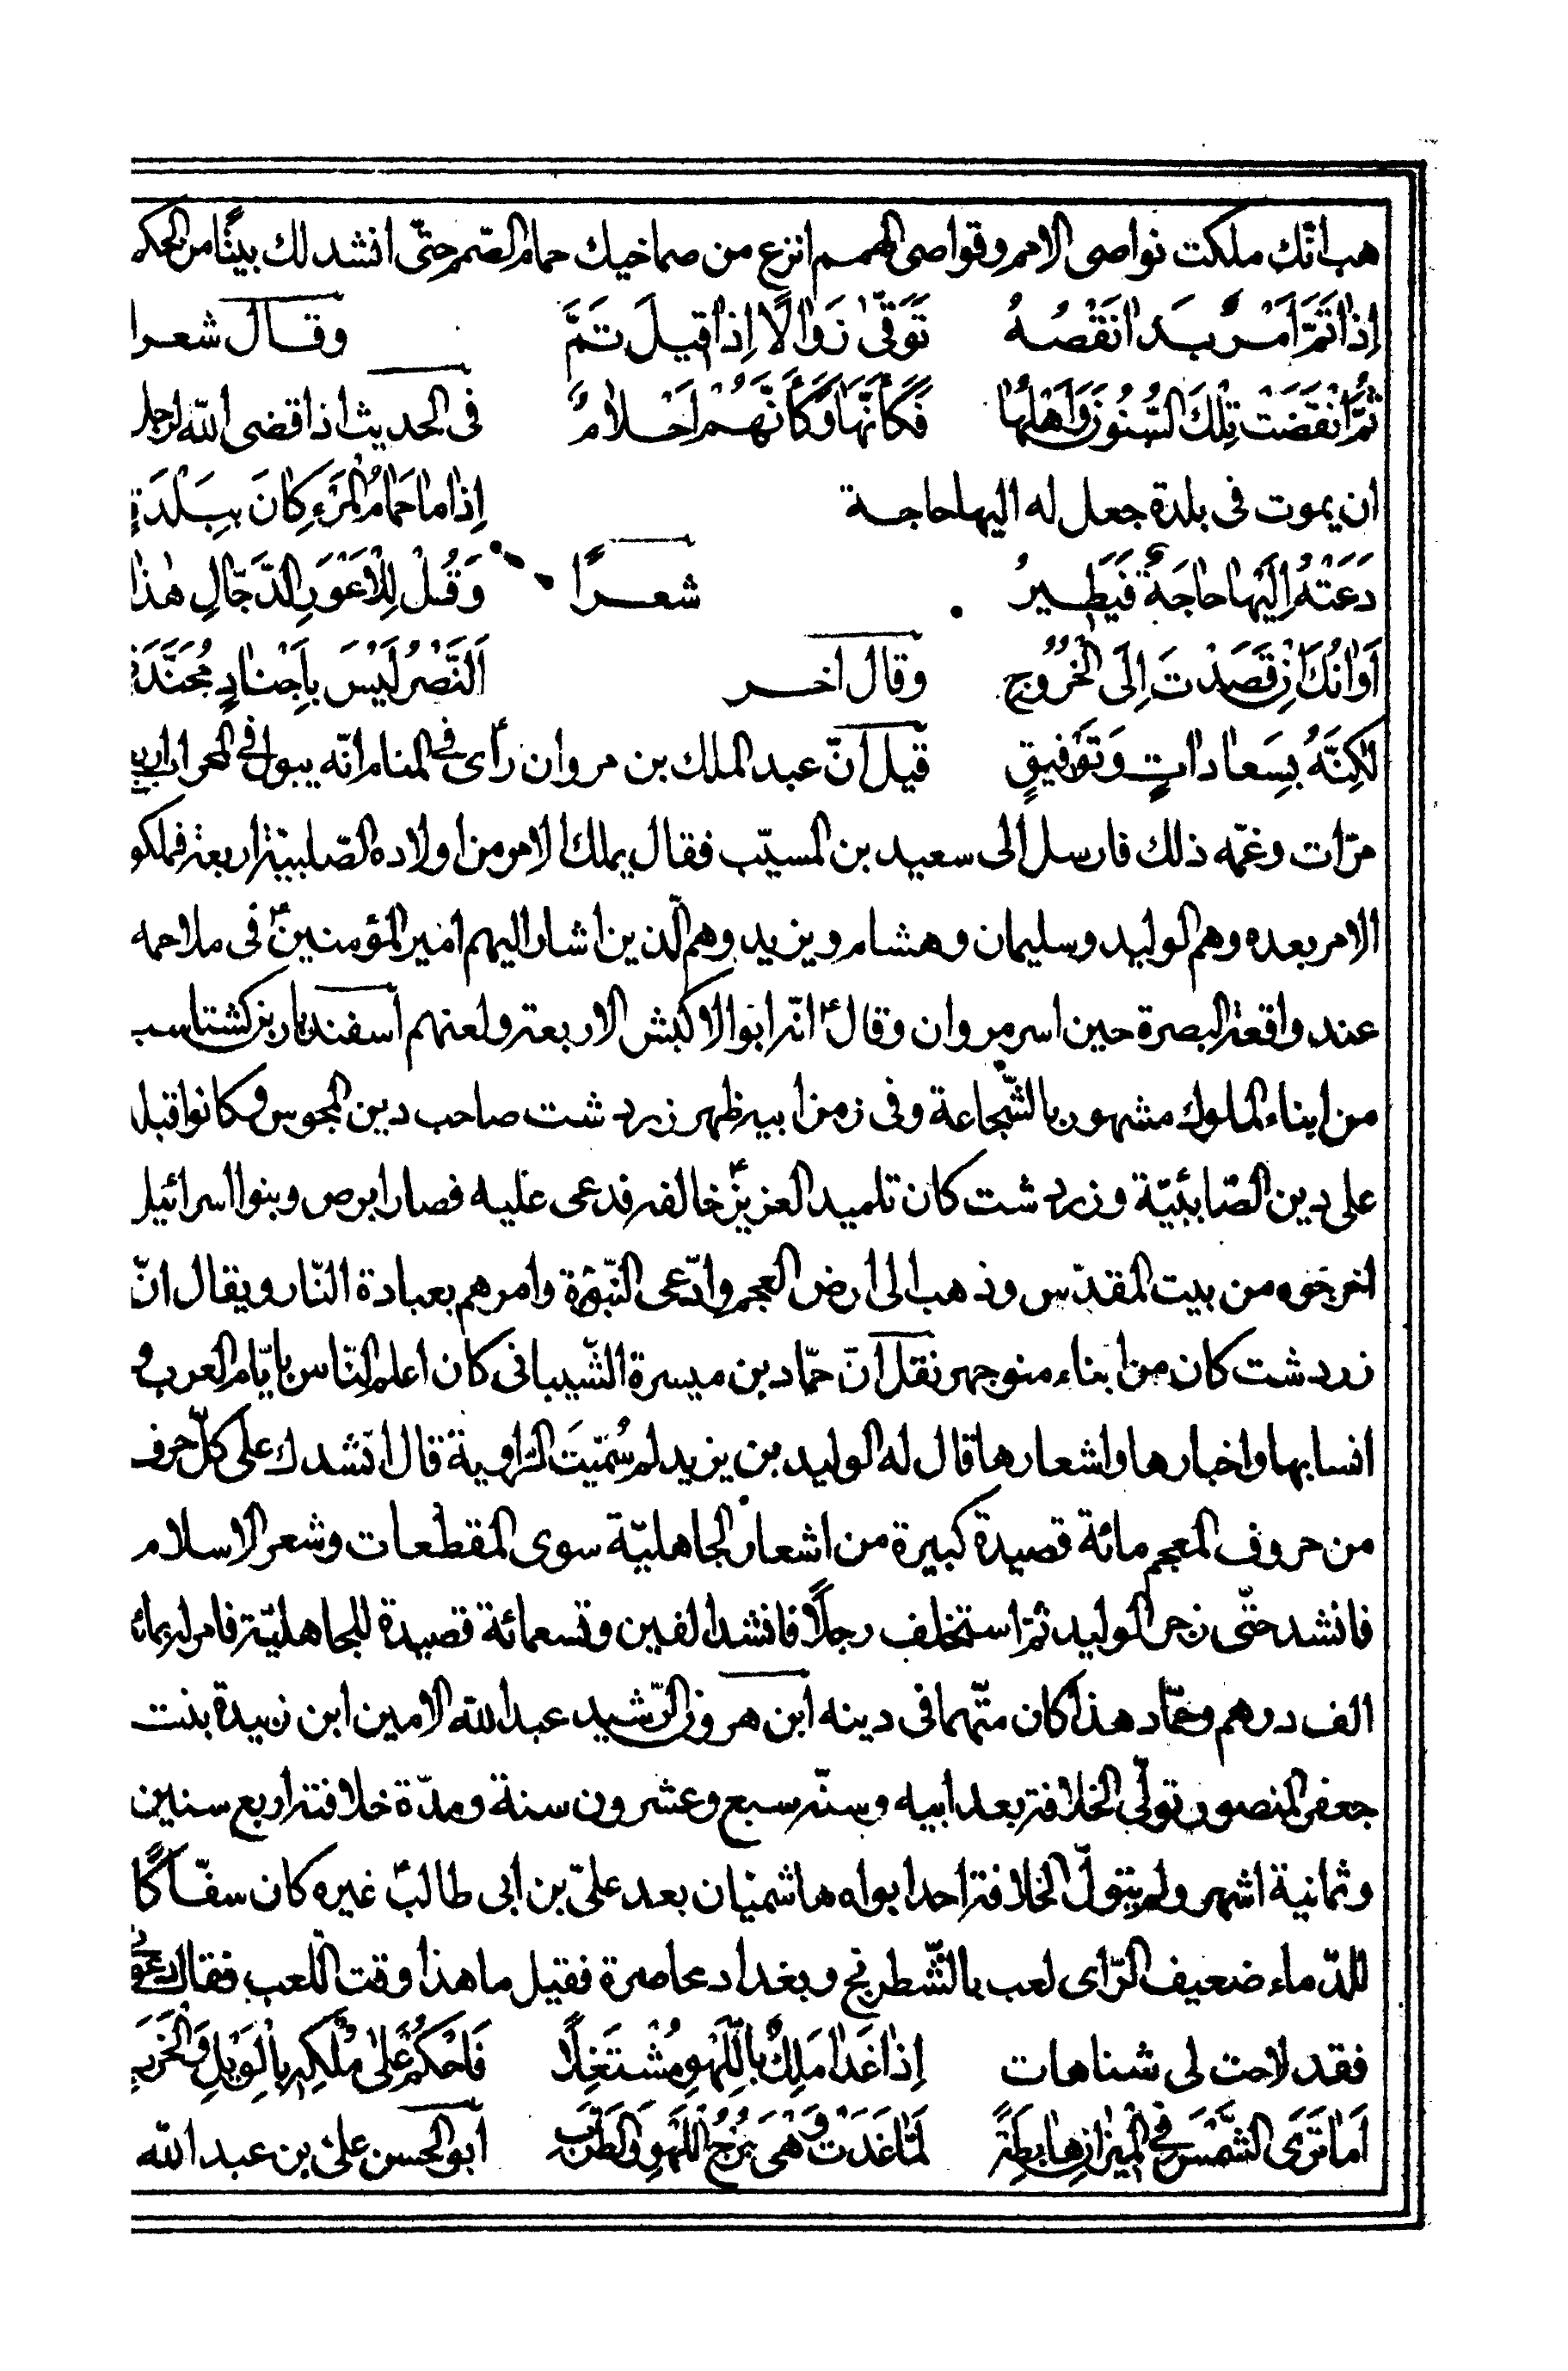 هب انّك ملكت نواصى الامم وقواصى الهمم انزع من صماخيك حمام الصّمم حتّى انشد لك بيتًا من الحكم
اِذَا تَمَّ اَمْرٌ بَدَا نَقْصُهُ تَوَقَّى زَوَالًا اِذَا قِيلَ تَمَّ وقال شعرا
ثُمَّ انْقَضَتْ تِلْكَ السُّنُونُ وَاَهْلُهَا فَكَاَنَّهَا وَكَاَنَّهُمْ اَحْلَامٌ فى الحديث اذا قضى الله لرجل
ان يموت فى بلدة جعل له اليها حاجة اِذَا مَا حَمَامُ الْمَرْءِ كَانَ بِبَلْدَةٍ
دَعَتْهُ اِلَيْهَا حَاجَةٌ فَيَطِيرُ شعرًا وَقُلْ لِلْاَعْوَرِ الدَّجَّالِ هٰذَا
اَوَانُكَ اِنْ قَصَدْتَ اِلَى الْخُرُوجِ وقال اخر اَلنَّصْرُ لَيْسَ بِاَجْنَادٍ مُجَنَّدَةٍ
لٰكِنَّهُ بِسَعَادَاتٍ وَتَوْفِيقٍ قيل انّ عبد الملك بن مروان رأى في المنام انّه يبول في المحراب اربع
مرّات وغمّه ذلك فارسل الى سعيد بن المسيّب فقال يملك الامر من اولاده الصّلبيّة اربعة فملكو
الامر بعده وهم الوليد وسليمان وهشام ويزيد وهم الّذين اشار اليهم امير المؤمنينؑ فى ملاحمه
عند واقعة البصرة حين اسر مروان وقالؑ انّه ابو الاكبش الاربعة ولعنهم اسفنديار بن كشتاسب
من ابناء الملوك مشهور بالشّجاعة وفى زمن ابيه ظهر زردشت صاحب دين المجوس وكانوا قبل
على دين الصّابئيّة وزردشت كان تلميد العزيرؑ خالفه فدعى عليه فصار ابرص وبنوا اسرائيل
اخرجوه من بيت المقدّس وذهب الى ارض العجم وادّعى النّبوّة وامرهم بعبادة النّار ويقال انّ
زردشت كان من ابناء منوجهر نقل انّ حمّاد بن ميسرة الشّيبانى كان اعلم النّاس بايّام العرب و
انسابها واخبارها واشعارها قال له الوليد بن يزيد لم سُمّيَتَ الرّاوية قال انشدك على كلّ حرف
من حروف المعجم مائة قصيدة كبيرة من اشعار الجاهليّة سوى المقطعات وشعر الاسلام
فانشد حتّى زجر الوليد ثمّ استخلف رجلًا فانشد الفين وتسعمائة قصيدة للجاهليّة فامر له بمائة
الف درهم وحمّاد هذا كان متّهما فى دينه ابن هرون الرّشيد عبد الله الامين ابن زبيدة بنت
جعفر المنصور تولّى الخلافة بعد ابيه وسنّه سبع وعشرون سنة ومدّة خلافته اربع سنين
وثمانية اشهر ولم يتولّ الخلافة احد ابواه هاشميّان بعد علىّ بن ابى طالبؑ غيره كان سفّاكًا
للدّماء ضعيف الرّاى لعب بالشّطرنج وبغداد محاصرة فقيل ما هذا وقت اللّعب فقال دعو
فقد لاحت لى شناهات اِذَا غَدَا مَلِكٌ بِاللَّهْوِ مُشْتَغِلًا فَاحْكُمْ عَلَى مُلْكِهِ بِالْوَيْلِ وَالْخَرَبِ
اَمَا تَرَى الشَّمْسَ فِي الْمِيزَانِ هَابِطَةً لَمَّا غَدَتْ وَهْىَ بُرْجُ اللَّهْوِ وَالطَّرَبِ ابو الحسن علىّ بن عبد الله